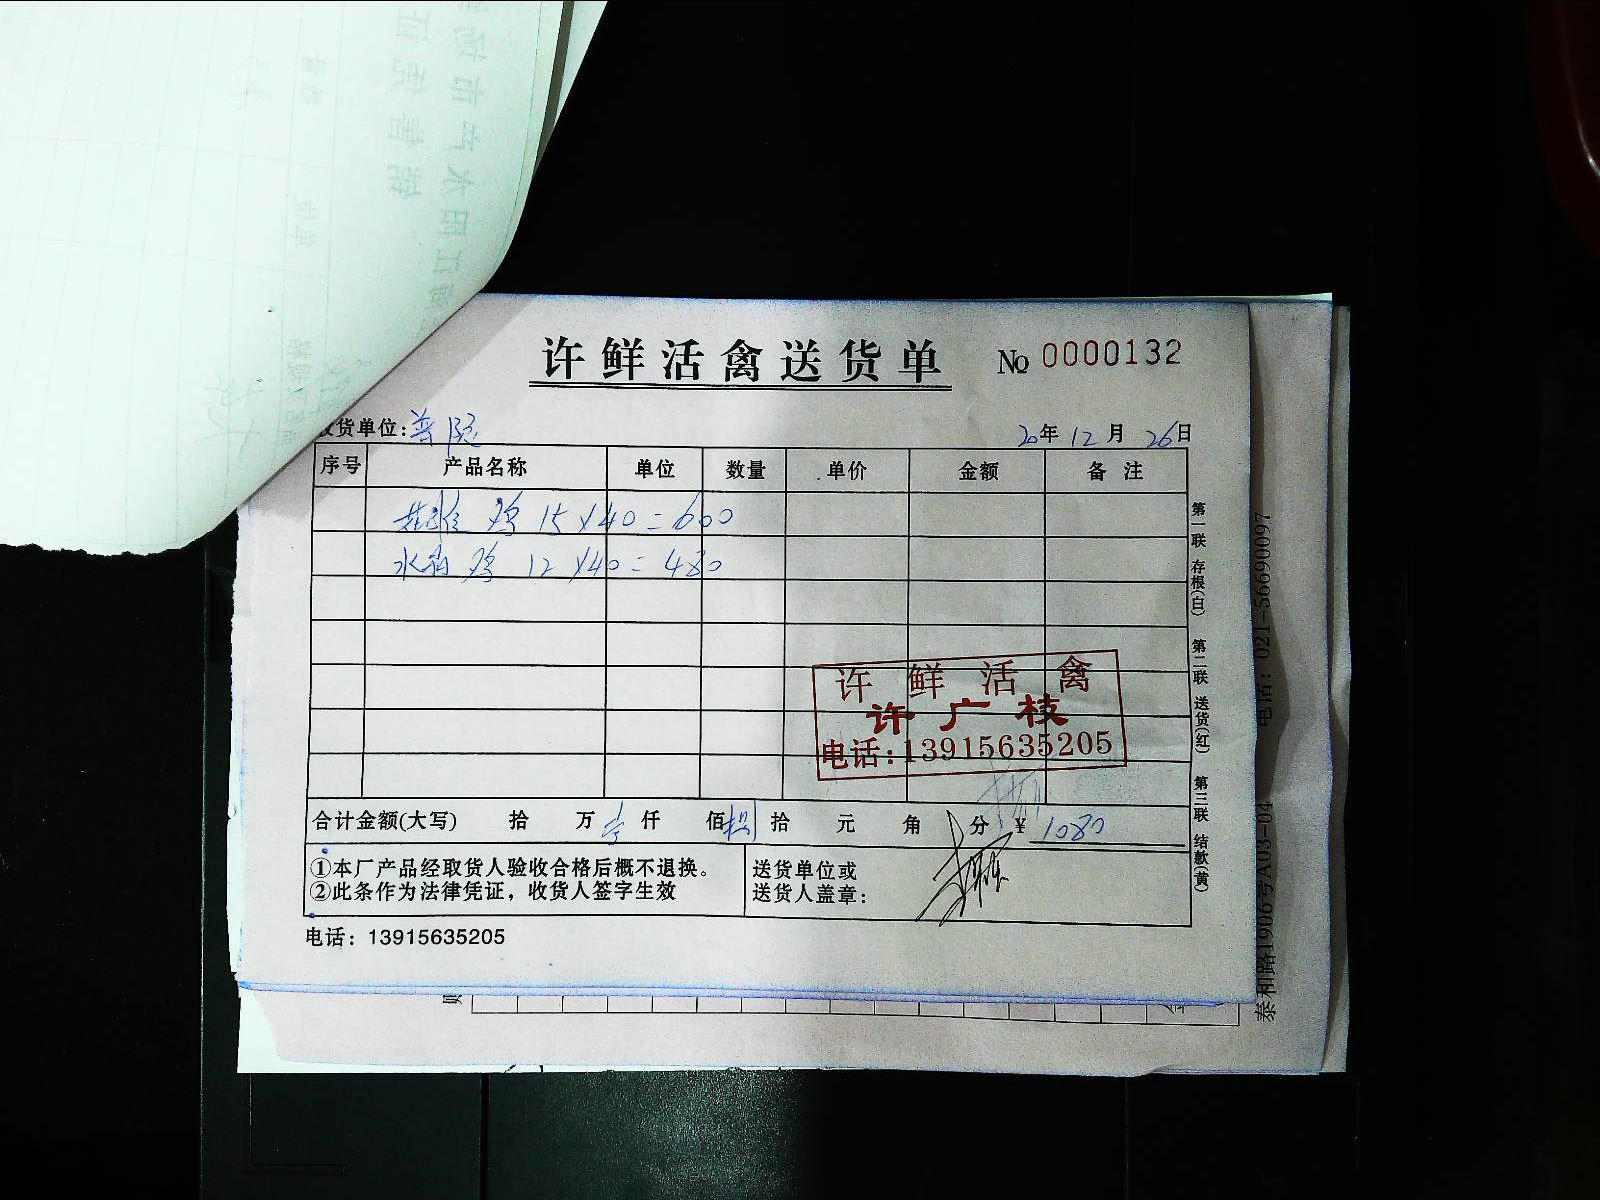 许鲜活禽送货单 № 0000132
货单位:普陀 20年12月26日
序号 产品名称 单位 数量 单价 金额 备注
鸡 15×40=600
水 鸡 12×40=480
许鲜活禽
许广枝
电话:13915635205
合计金额(大写) 拾 万 壹 仟 佰 捌 拾 元 角 分 ¥ 1080
①本厂产品经取货人验收合格后概不退换。
②此条作为法律凭证，收货人签字生效
送货单位或
送货人盖章:
电话: 13915635205
第一联 存根(白) 第二联 送货(红) 第三联 结款(黄)
泰和路1906号A03-04 电话: 021-56690097